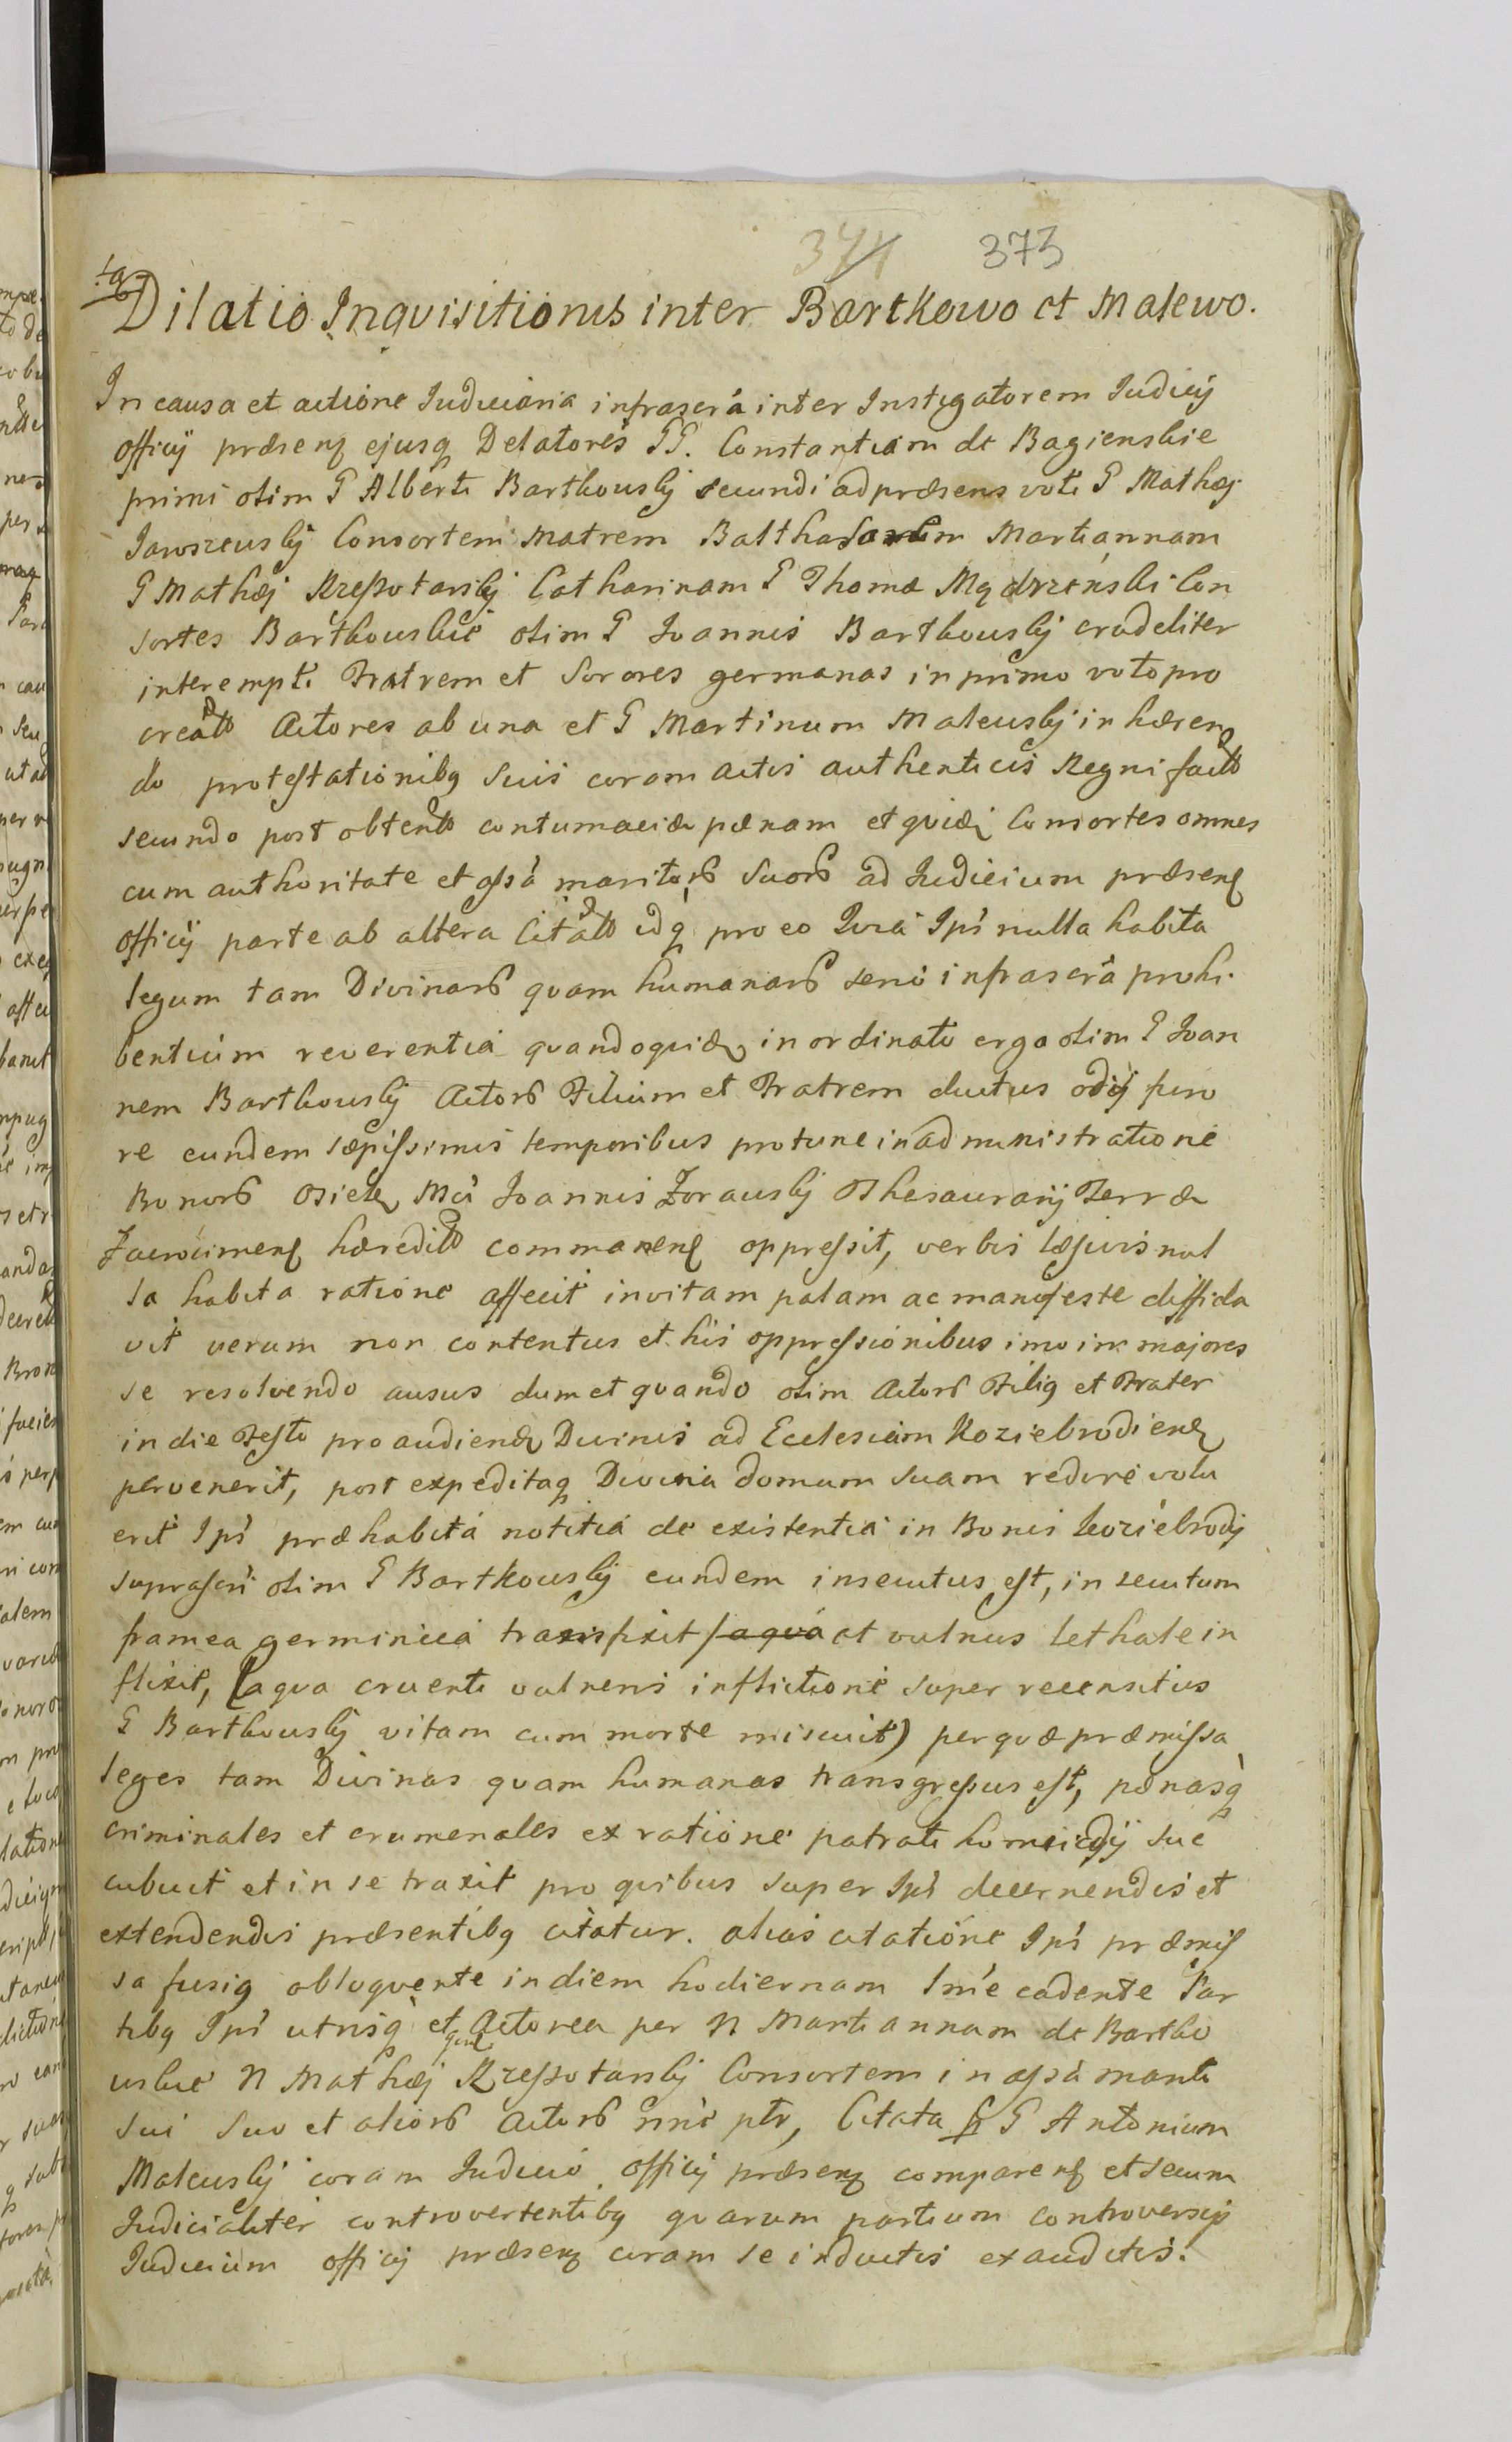 371 373
Dilatio Inquisitionis inter Bartkowo et Malewo.
In causa et actione Judiciaria infrascrâ inter Instigatorem Judicij
officij præsenʒ ejusqʒ Delatores GG. Constantiam de Bagienskie
primi olim G Alberti Bartkouskj secundi ad præsens voti G Mathæj
Jaroszeuskj Consortem Matrem Balthasarem Martiannam
G Mathæj Kressotarskj Catharinam G Thomæ Mądrzenski Con
sortes Bartkouskie olim G Joannis Bartkouskj crudeliter
interempti Fratrem et Sorores germanas in primo voto pro
creatos Actores ab una et G Martinum Maleuskj in hæren
do protestationibʒ suis coram actis authenticis Regni factis
secundo post obtentam contumaciæ pænam et quidē Consortes omnes
cum authoritate et assâ maritorʒ suorʒ ad Judicium præsenʒ
officij parte ab altera Citatos idqʒ pro eo Quia Ipŝ nulla habita
legum tam Divinarʒ quam humanarʒ scrio infrascrâ prohi-
bentium reverentia quandoquidē in ordinate erga olim G Joan
nem Bartkouskj Actorʒ Filium et Fratrem ductus odij furo
re eundem sæpissimis temporibus protunc in administratione
Bonorʒ Osiek Mci Joannis Zorauskj Thesaurarij Terræ
Zacrocimenʒ hæreditō commanenʒ oppressit, verbis læsivis nul
la habita ratione affecit invitam palam ac manifeste diffida
vit verum non contentus et his oppressionibus imo in majores
se resolvendo ausus dum et quando olim Actorʒ Filiʒ et Frater
in die Festo pro audienđ Divinis ad Ecclesiam Koziebrodienʒ
pervenerit, post expeditaqʒ Divina domum suam redire volu
erit Ipŝ præhabitâ notitiâ de existentia in Bonis Koziebrody
suprascri olim G Bartkouskj eundem insecutus est, insecutum
framea germinicia transfixit (a qua et vulnus lethale in
flixit, (a qua cruenti vulneris inflictione super recensitus
G Bartkouskj vitam cum morte miscuit) per quæ præmissa
leges tam Divinas quam humanas transgressus est, pænasq̀
criminales et crumenales ex ratione patrati homicidij suc
cubuit et in se traxit pro quibus super Ipŝ decernendis et
extendendis præsentibʒ citatur. alias citatione Ipŝ præmis
sa fusiʒ obloquente in diem hodiernam lnie cadente Par
tibʒ Ipŝ utrisq̀ et Actorea per N Martiannam de Bartko
uskie N Mathæj Kressotarskj Consortem in assâ mariti
sui suo et aliorʒ Actorʒ nnie ptr, Citata p G Antonium
Maleuskj coram Judicio officij præsenʒ comparenʒ et secum
Judicialiter controvertentibʒ quarum partium controversijs
Judicium officij præsenʒ coram se inductis exauditis.